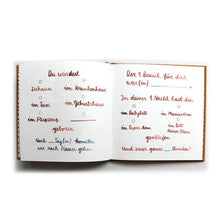 Du wurdest
Zuhause
im Krankenhaus
im Taxi
im Geburtshaus
im Flugzeug
geboren
Nach Tag(en) konnten
wir nach Hause gehen.
Der 1. Besuch für dich
war(en)
In deiner 1. Nacht hast du
im Babybett
in Mamas Arm
in Papas Arm
im Bett
deiner Eltern
geschlafen.
Und zwar ganze Stunden!